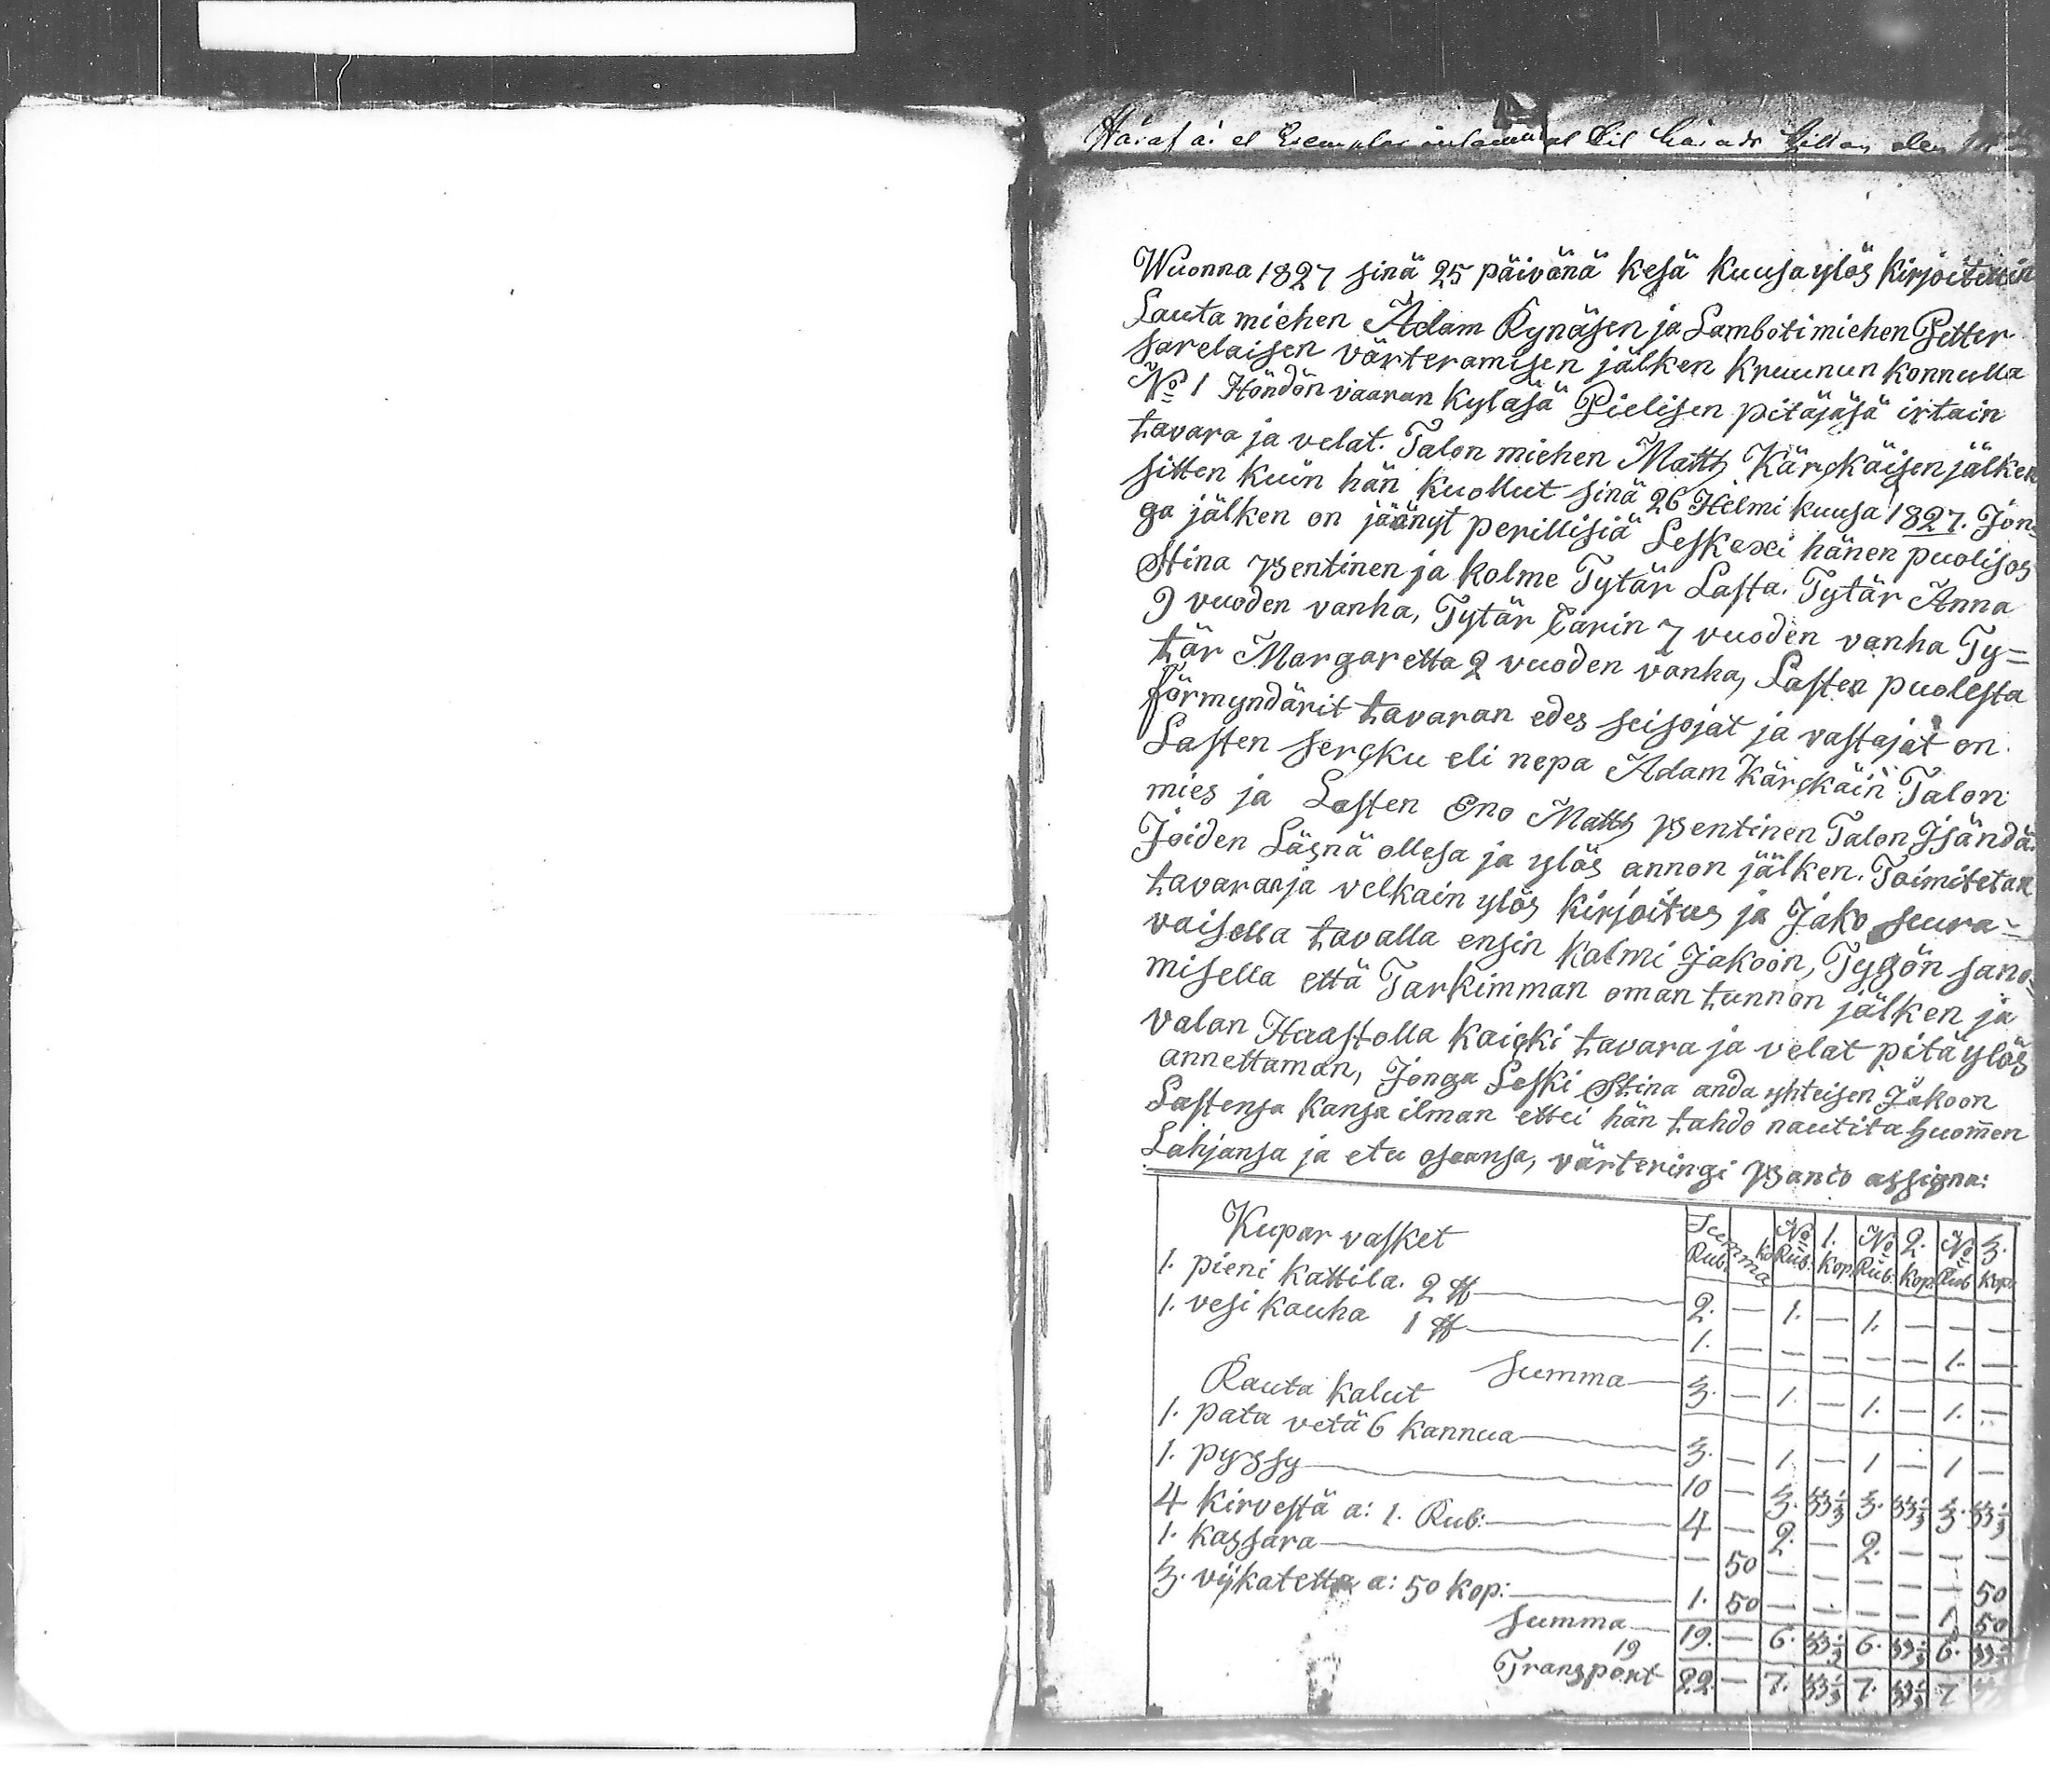 Häraf är et Exemplar inlämnat til Härads Rätten den
Wuonna 1827 sinä 25 päivänä kesä kuusa ylös kirjoitettin
Lauta miehen Adam Rynäsen ja Lambotimiehen Petter
sarelaisen värteramisen jälken kruunun konnulla
No 1 Höndön vaaran kyläsä Pielisen pitäjäsä irtain
tavara ja velat. Talon miehen Matts Kärckäisen jälken
sitten kuin hän kuollut sinä 26 Helmi kuusa 1827. Jon=
ga jälken on jäänyt perillisiä Leskexi hänen puolisos
Stina Pentinen ja kolme Tytär Lasta. Tytär Anna
9 vuoden vanha, Tytär Carin 7 vuoden vanha Ty=
tär Margaretta 2 vuoden vanha, Lasten puolesta
förmyndärit tavaran edes seisojat ja vastajat on
Lasten sercku eli nepa Adam Kärckäin Talon
mies ja Lasten Eno Matts Pentinen Talon Isändä.
Joiden Läsnä ollesa ja ylös annon jälken. Toimitetan
tavaran ja velkain ylös kirjoitus ja Jako seura=
vaisella tavalla ensin kolmi Jakoon, Tygön sano=
misella että Tarkimman oman tunnon jälken ja
valan Haastolla kaicki tavara ja velat pitä ylös
annettaman, Jonga Leski Stina anda yhteisen Jakoon
Lastensa kansa ilman ettei hän tahdo nautita huomen
Lahjansa ja etu osaansa, värteringi Banco assigna:
Kupar vasket Summa No 1. No 2. No 3.
Rub: ko Rub: kop. Rub: kop. Rub kop:
1. pieni kattila. 2 ℔ 2. — 1. — 1. — — —
1. vesi kauha 1 ℔ 1. — — — — — 1. —
Summa 3. — 1. — 1. — 1. —
Rauta kalut
1. pata vetä 6 kannua 3. — 1 — 1 — 1 —
1. pyssy 10 — 3. 33⅓ 3. 33⅓ 3. 33⅓
4 kirvestä a: 1. Rub: 4 — 2. — 2. — — —
1. kassara — 50 — — — — — 50
3. vijkatetta a: 50 kop: 1. 50 — — — — 1 50
Summa 19. — 6. 33⅓ 6. 33⅓ 6. 33⅓
19
Transport 22. — 7. 33⅓ 7. 33⅓ 7